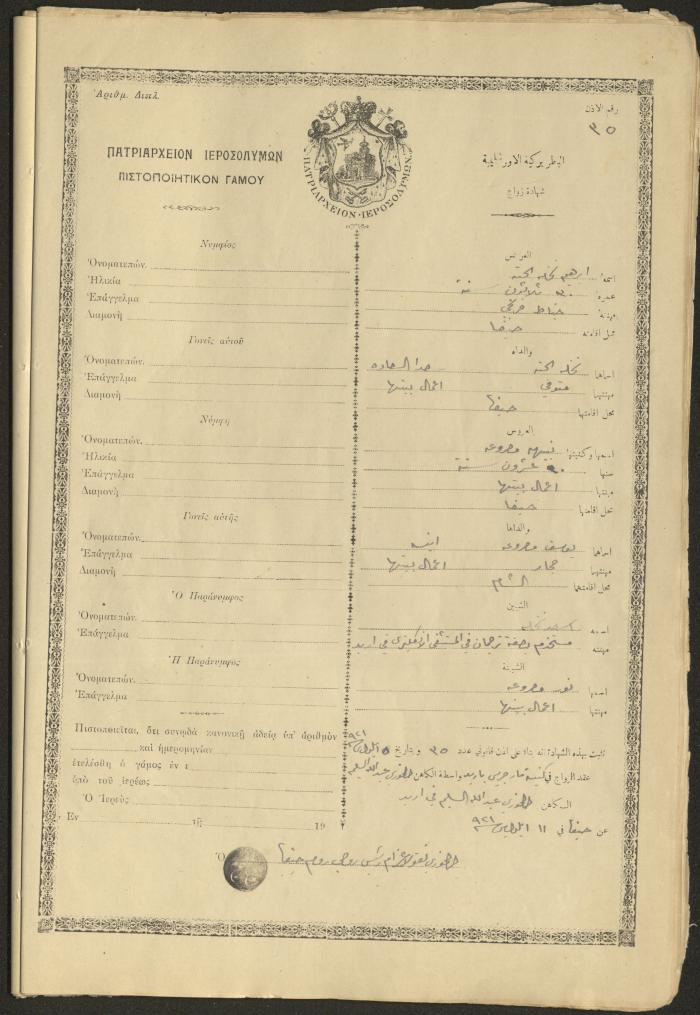 Ἀριθμ. Διπλ.
ΠΑΤΡΙΑΡΧΕΙΟΝ ΙΕΡΟΣΟΛΥΜΩΝ
ΠΙΣΤΟΠΟΙΗΤΙΚΟΝ ΓΑΜΟΥ
ΠΑΤΡΙΑΡΧΕΙΟΝ·ΙΕΡΟΣΟΛΥΜΩΝ
رقم الاذن
٣٥
البطريركية الاورشليمية
شهادة زواج
Νυμφίος
Ὀνοματεπών.
Ἡλικία
Ἐπάγγελμα
Διαμονὴ
Γονεῖς αὐτοῦ
Ὀνοματεπών.
Ἐπάγγελμα
Διαμονὴ
Νύμφη
Ὀνοματεπών.
Ἡλικία
Ἐπάγγελμα
Διαμονὴ
Γονεῖς αὐτῆς
Ὀνοματεπών.
Ἐπάγγελμα
Διαμονὴ
Ὁ Παράνυμφος
Ὀνοματεπών.
Ἐπάγγελμα
Ἡ Παράνυμφος
Ὀνοματεπών.
Ἐπάγγελμα
Πιστοποιεῖται, ὅτι συνῳδὰ κανονικῇ ἀδείᾳ ὑπ' ἀριθμὸν
καὶ ἡμερομηνίαν
ἐτελέσθη ὁ γάμος ἐν τ
ὑπὸ τοῦ ἱερέως
Ὁ Ἱερεὺς
Ἐν τῇ 19
Ὁ
العريس
اسمه ابرهيم نخله
عمره ٣٠ ثلاثون سنة
مهنته خياط
محل اقامته حيفا
والداه
اسماهما نخله
مهنتهما متوفي اعمال بيتها
محل اقامتهما حيفا
العروس
اسمها وكنيتها نبيهه
سنها ٢٠ عشرون سنة
مهنتها اعمال بيتها
محل اقامتها حيفا
والداها
اسماهما يوسف
مهنتهما اعمال بيتها
محل اقامتهما الشام
الشبين
اسمه نخله
مهنته مستخدم بصفة ترجمان في المستشفى الانكليزي في اربد
الشبينة
اسمها نور
مهنتها اعمال بيتها
تثبت بهذه الشهادة انه بناء على اذن قانوني عدد ٣٥ و بتاريخ ٥ ايلول ٩٢١
عقد الزواج في كنيسة مار جرجس باربد بواسطة الكاهن الخوري عبدالله السليم
الكاهن الخوري عبدالله السليم في اربد
عن حيفا في ١١ ايلول ٩٢١